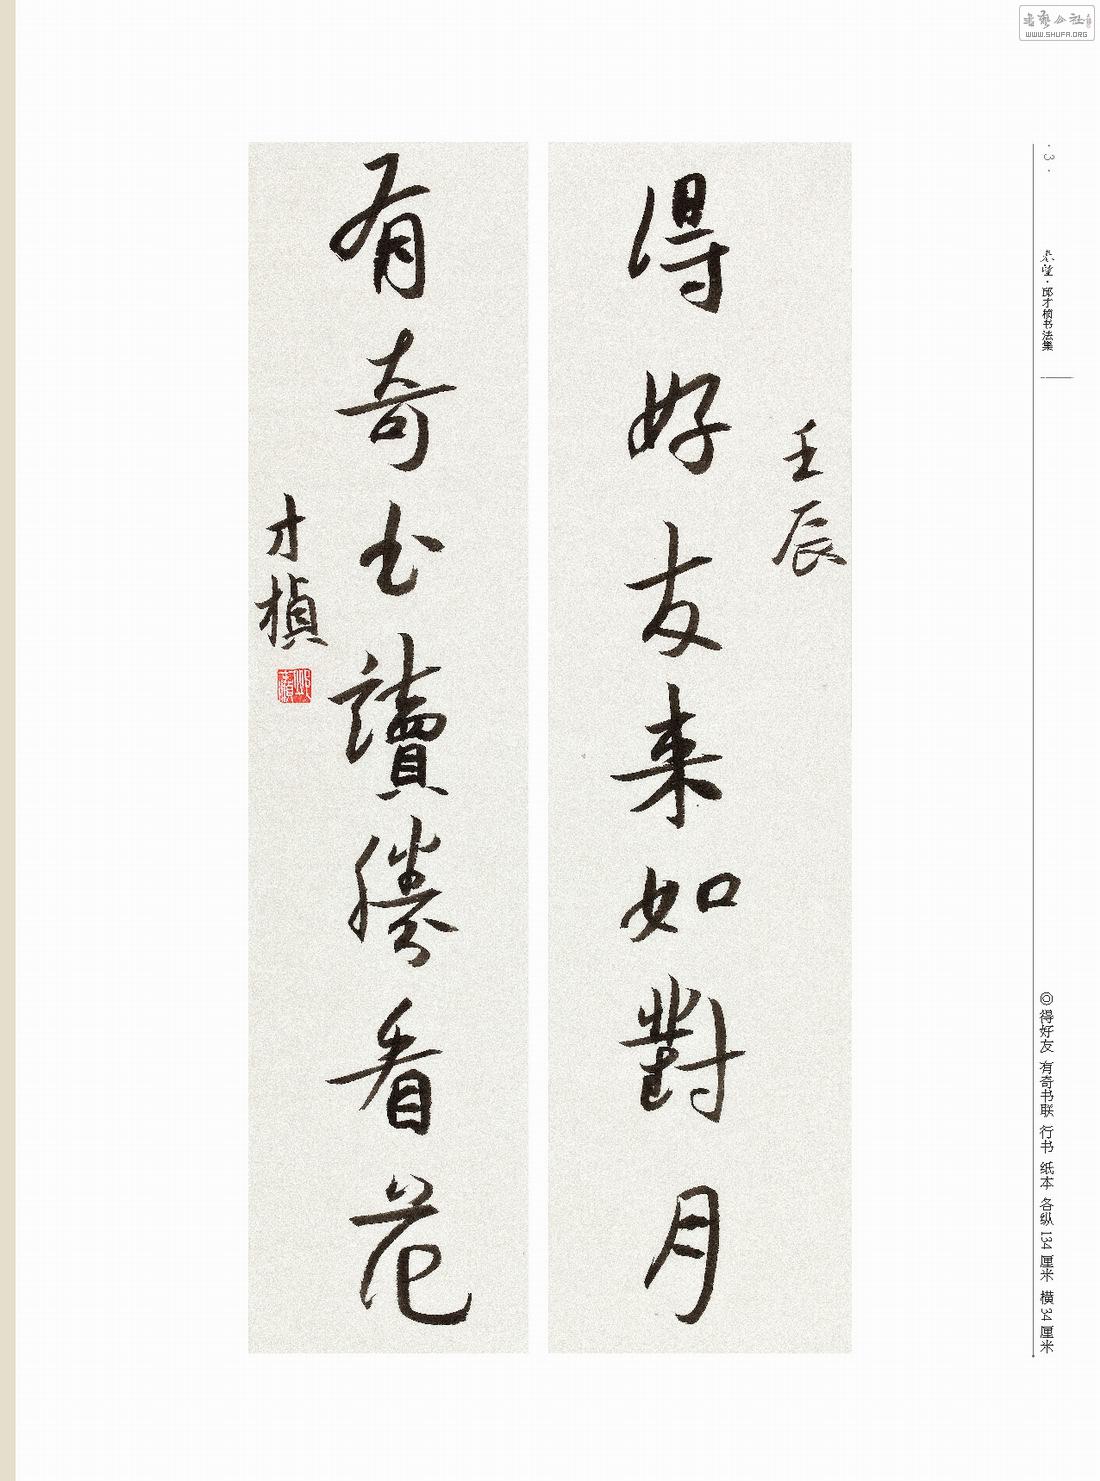 壬辰
得好友来如對月
有奇书讀勝看花
才楨
·3·
邱才楨书法集
◎得好友 有奇书联 行书 纸本 各纵134厘米 横34厘米
WWW.SHUFA.ORG